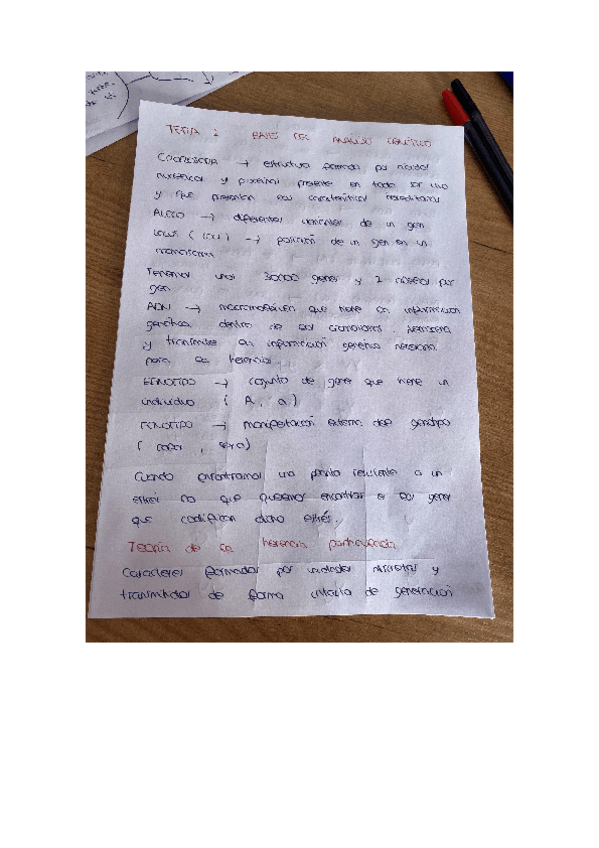 TEMA 2 BASES DEL ANÁLISIS GENÉTICO
CROMOSOMA → estructura formada por ácidos
nucleicos y proteínas presente en todo ser vivo
y que presentan las características hereditarias
ALELO → diferentes variantes de un gen
LOCUS (loci) → posición de un gen en un
cromosoma
Tenemos unos 30000 genes y 2 alelos por
gen
ADN → macromolécula que tiene la información
genética dentro de los cromosomas. Almacena
y transmite la información genética necesaria
para la herencia.
GENOTIPO → conjunto de genes que tiene un
individuo (A, a)
FENOTIPO → manifestación externa del genotipo
( color , sexo)
Cuando encontramos una planta resistente a un
estrés no que queremos encontrar es los genes
que codifican dicho estrés.
Teoría de la herencia particulada
Caracteres formados por unidades discretas y
transmitidos de forma intacta de generación